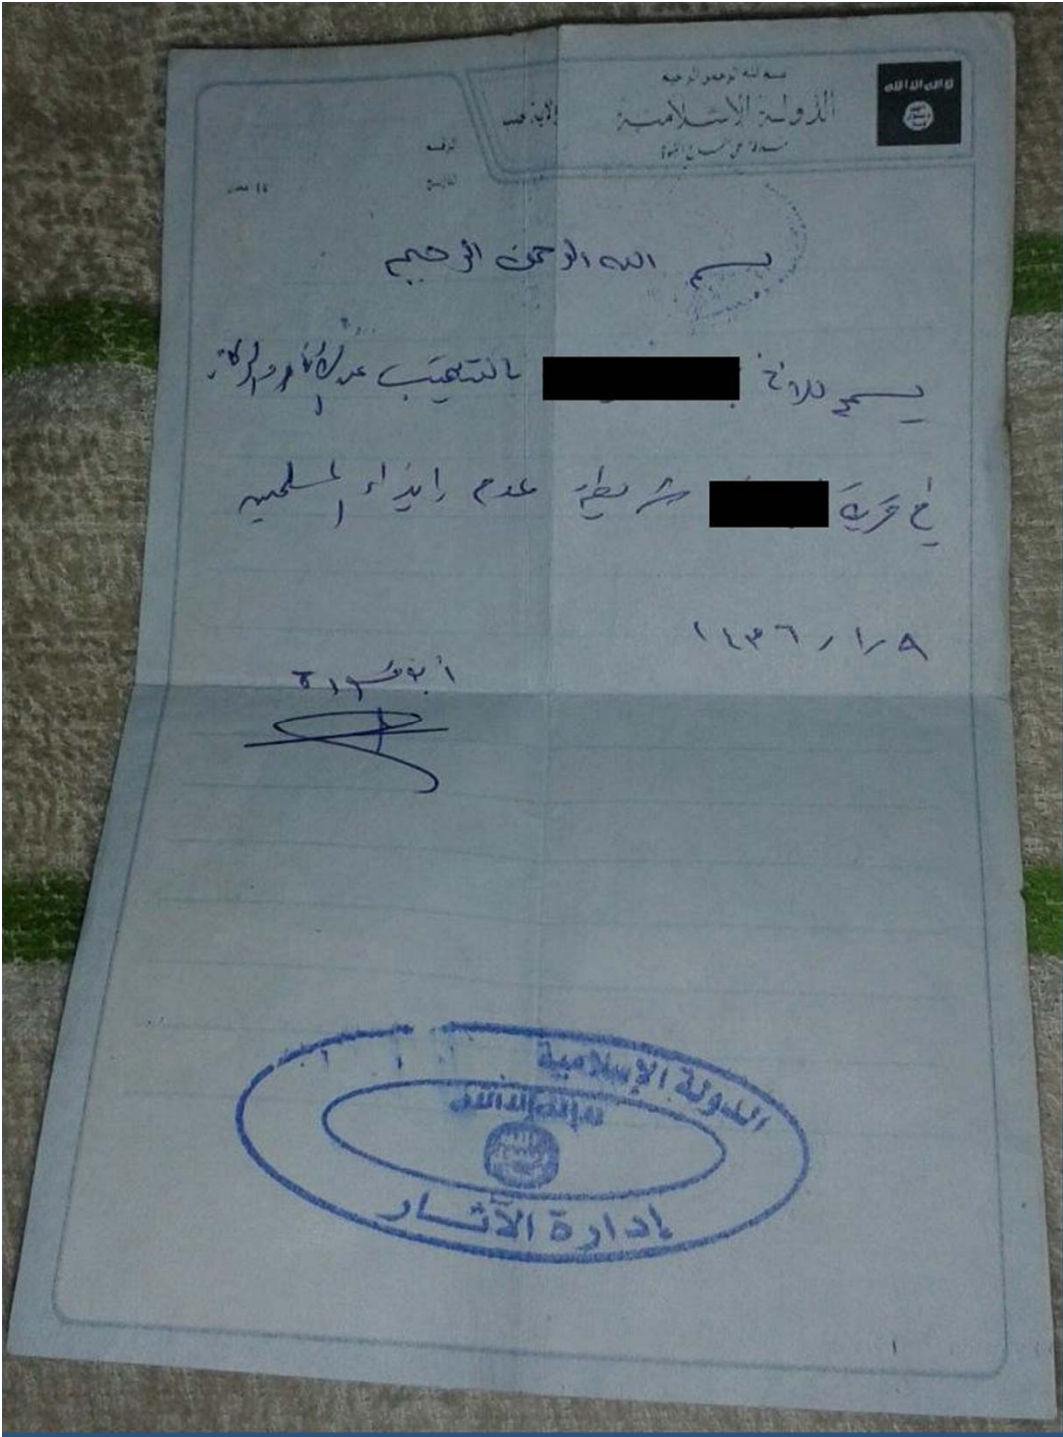 لا إله إلا الله
بسم الله الرحمن الرحيم
الدولة الإسلامية
ولاية حلب
الرقم
التاريخ
بسم الله الرحمن الرحيم
يسمح للأخ بالتنقيب عن الآثار
في قرية شريطة عدم إيذاء المسلمين
١٤٣٦/١/٩
أبو قسورة
الدولة الإسلامية
لا إله إلا الله
إدارة الآثار